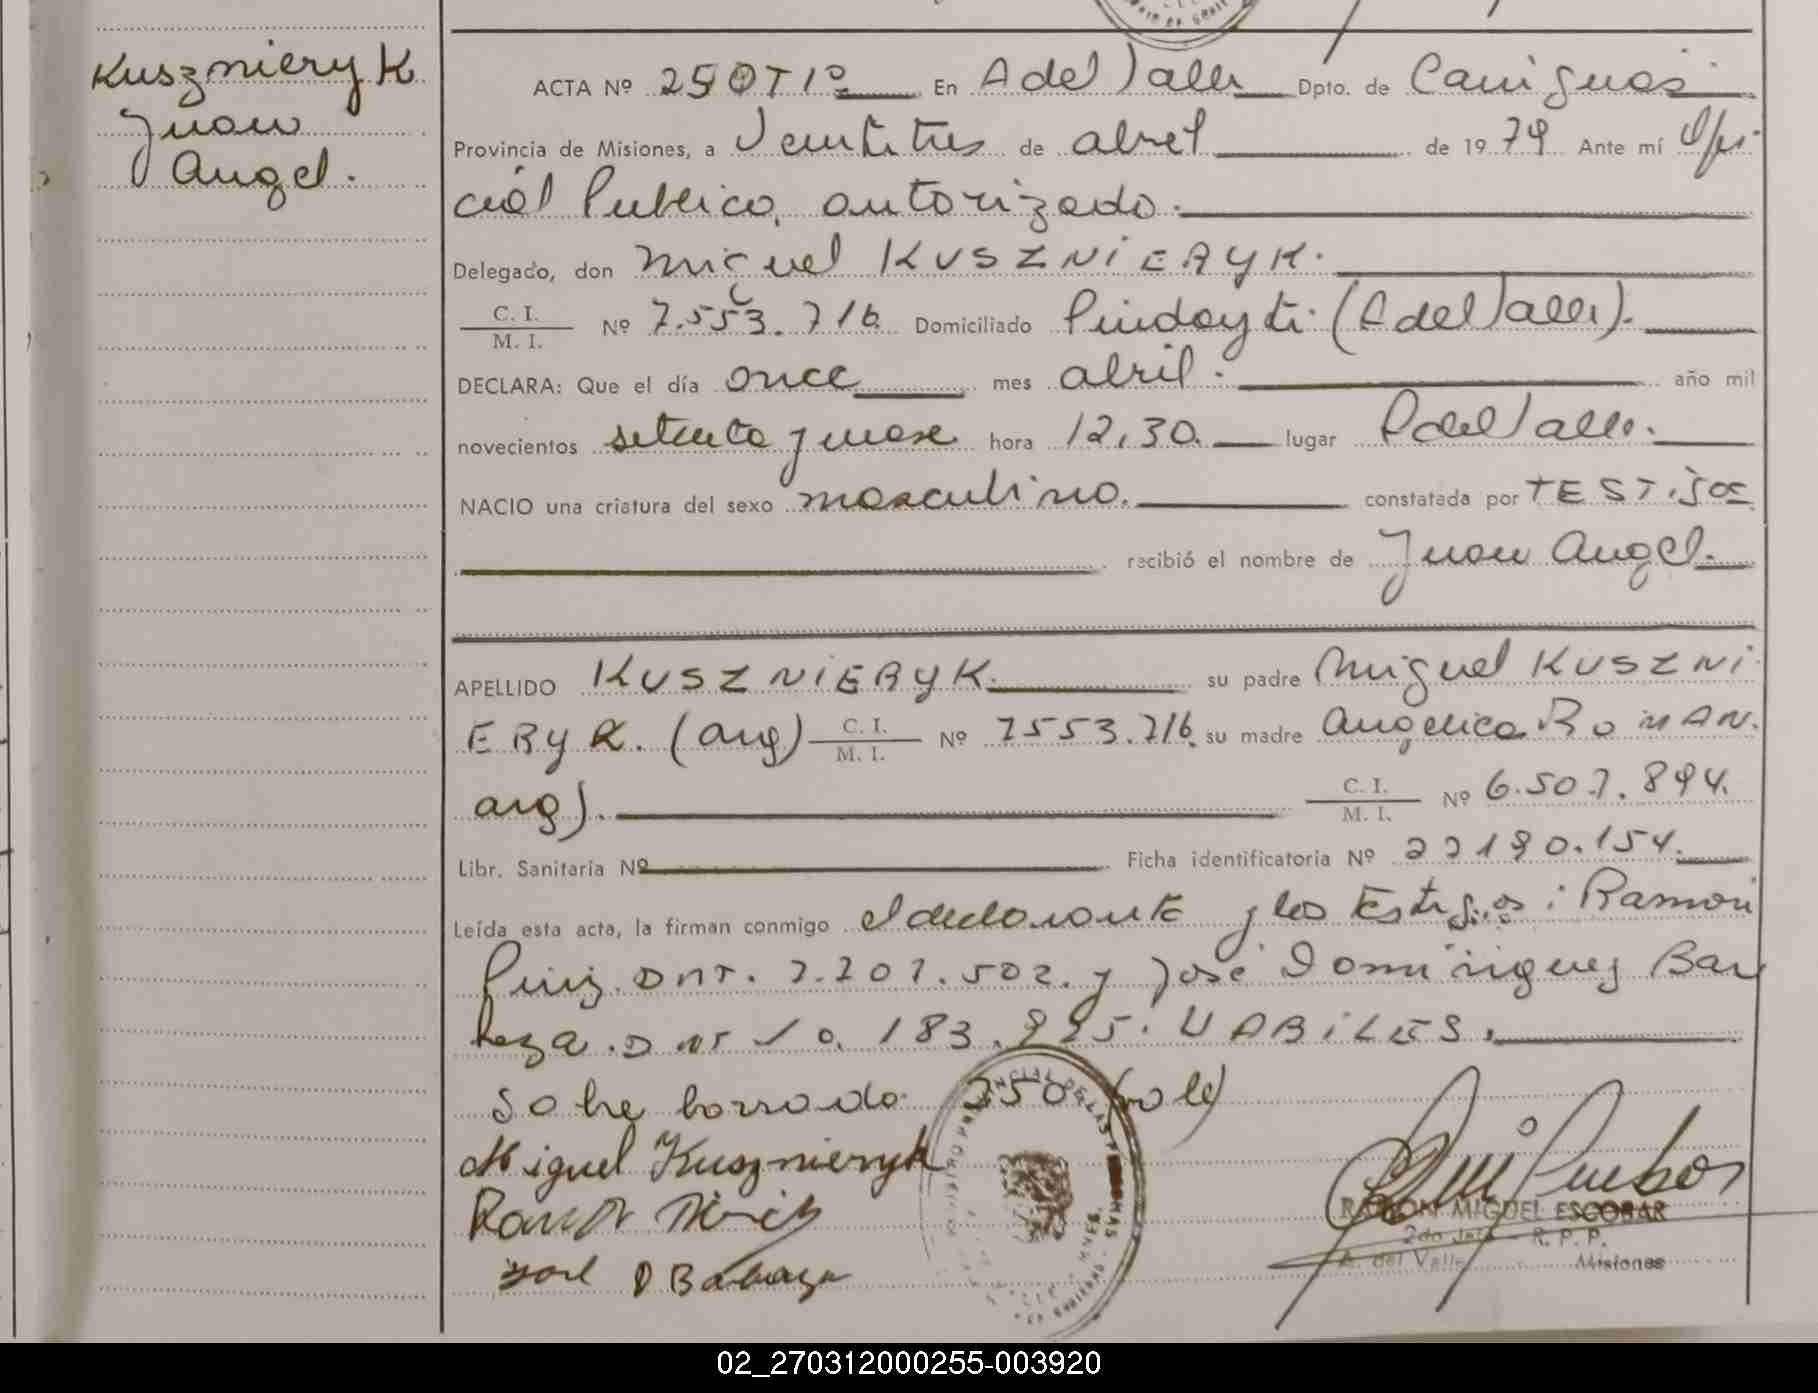 Kuszniery K
Juan
Angel.
ACTA Nº 250 T 1º En A del Valle Dpto. de Cainguas
Provincia de Misiones, a Veintitres de abril de 1979 Ante mí Ofi
cial Publico, autorizado.
Delegado, don Miguel KUSZNIERYK.
C. I.
M. I.
Nº 7.553.716 Domiciliado Pindayti (A del Valle).
DECLARA: Que el día once mes abril. año mil
novecientos setenta y nueve hora 12,30. lugar A del Valle.
NACIO una criatura del sexo masculino. constatada por TESTIGOS
recibió el nombre de Juan Angel.
APELLIDO KUSZNIERYK. su padre Miguel KUSZNI
ERYK. (arg) C. I. / M. I. Nº 7553.716. su madre Angelica ROMAN.
arg). C. I. / M. I. Nº 6.507.894.
Libr. Sanitaria Nº Ficha identificatoria Nº 22190.154.
Leída esta acta, la firman conmigo el declarante y los Testigos: Ramon
DNI. 7.207.502. y José Dominguez Bar
boza. DNI 10.183.995. UABILES.
Sobre borrado 250 (vale)
Miguel Kusznieryk
Jose D Barboza
RAMON MIGUEL ESCOBAR
2do Jefe - R. P. P.
A. del Valle Misiones
02_270312000255-003920